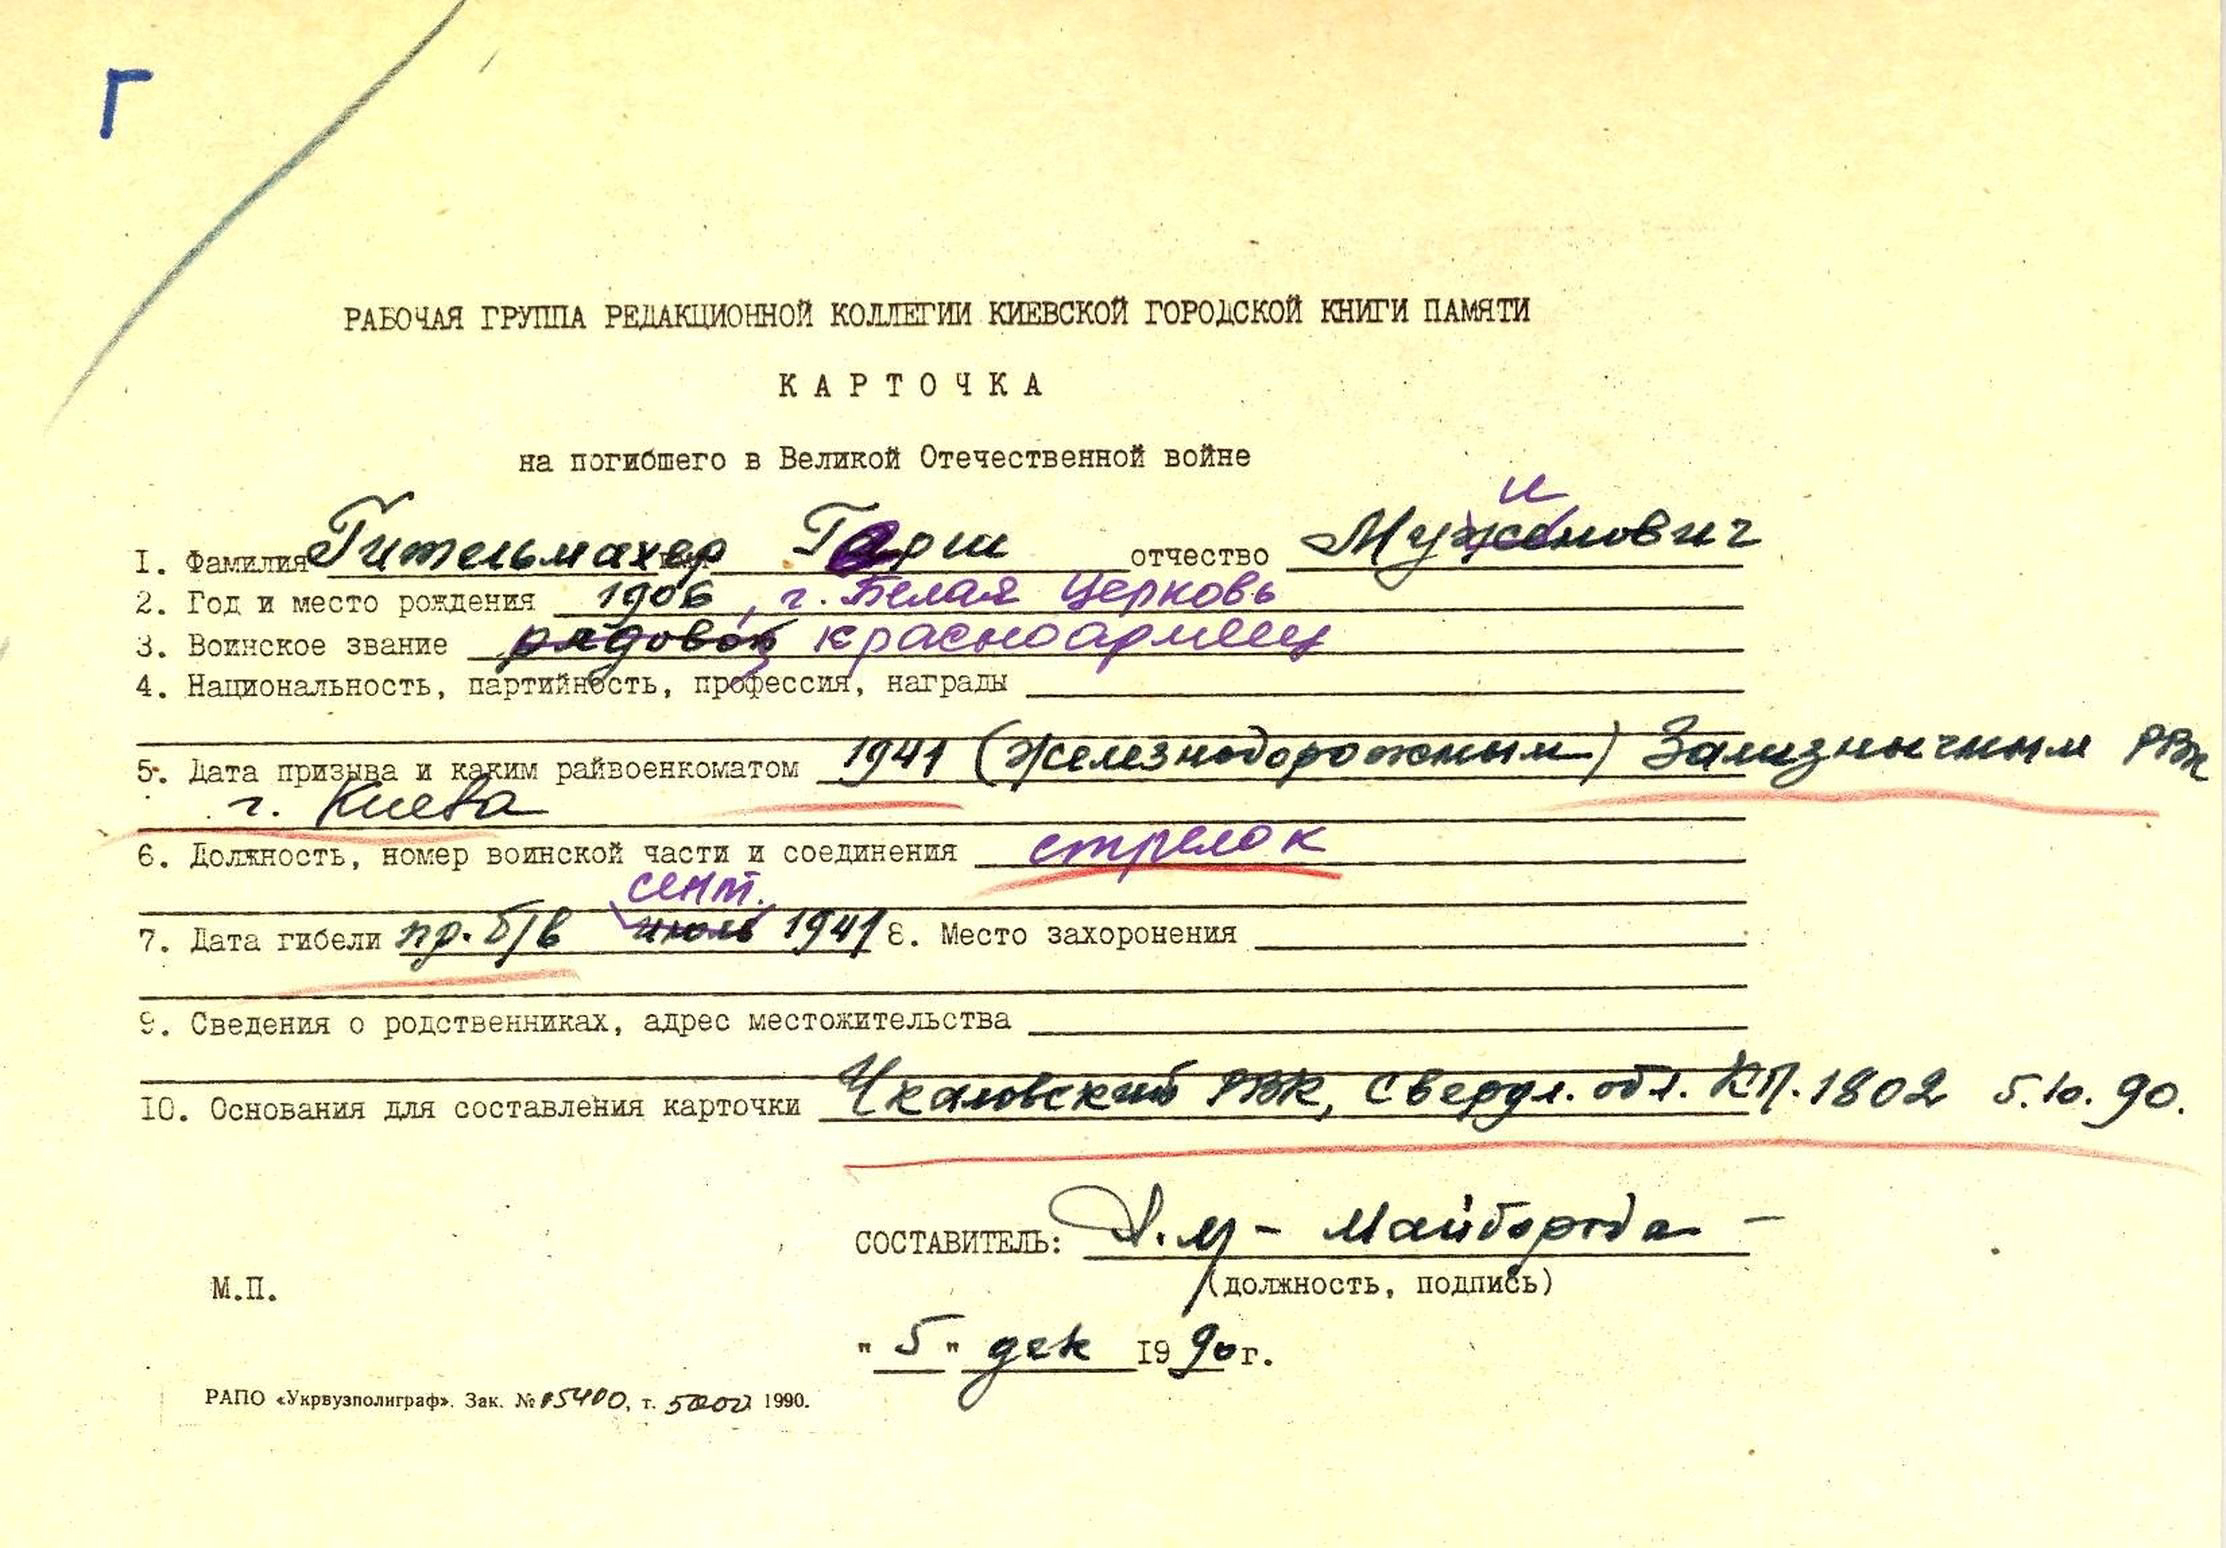 Г
РАБОЧАЯ ГРУППА РЕДАКЦИОННОЙ КОЛЛЕГИИ КИЕВСКОЙ ГОРОДСКОЙ КНИГИ ПАМЯТИ
КАРТОЧКА
на погибшего в Великой Отечественной войне
и
I. Фамилия Гительмахер Гарш отчество Мужёнович
2. Год и место рождения 1906, г. Белая Церковь
3. Воинское звание рядовой красноармеец
4. Национальность, партийность, профессия, награды
5. Дата призыва и каким райвоенкоматом 1941 (Железнодорожным) Зализнычным РВК
г. Киева
6. Должность, номер воинской части и соединения стрелок
сент.
7. Дата гибели пр. б/в июль 1941 8. Место захоронения
9. Сведения о родственниках, адрес местожительства
10. Основания для составления карточки Чкаловский РВК, Свердл. обл. КП. 1802 5.10.90.
СОСТАВИТЕЛЬ: Майборода
М.П. (должность, подпись)
"5" дек 1990г.
РАПО «Укрвузполиграф». Зак. № 05400, т. 5000 1990.